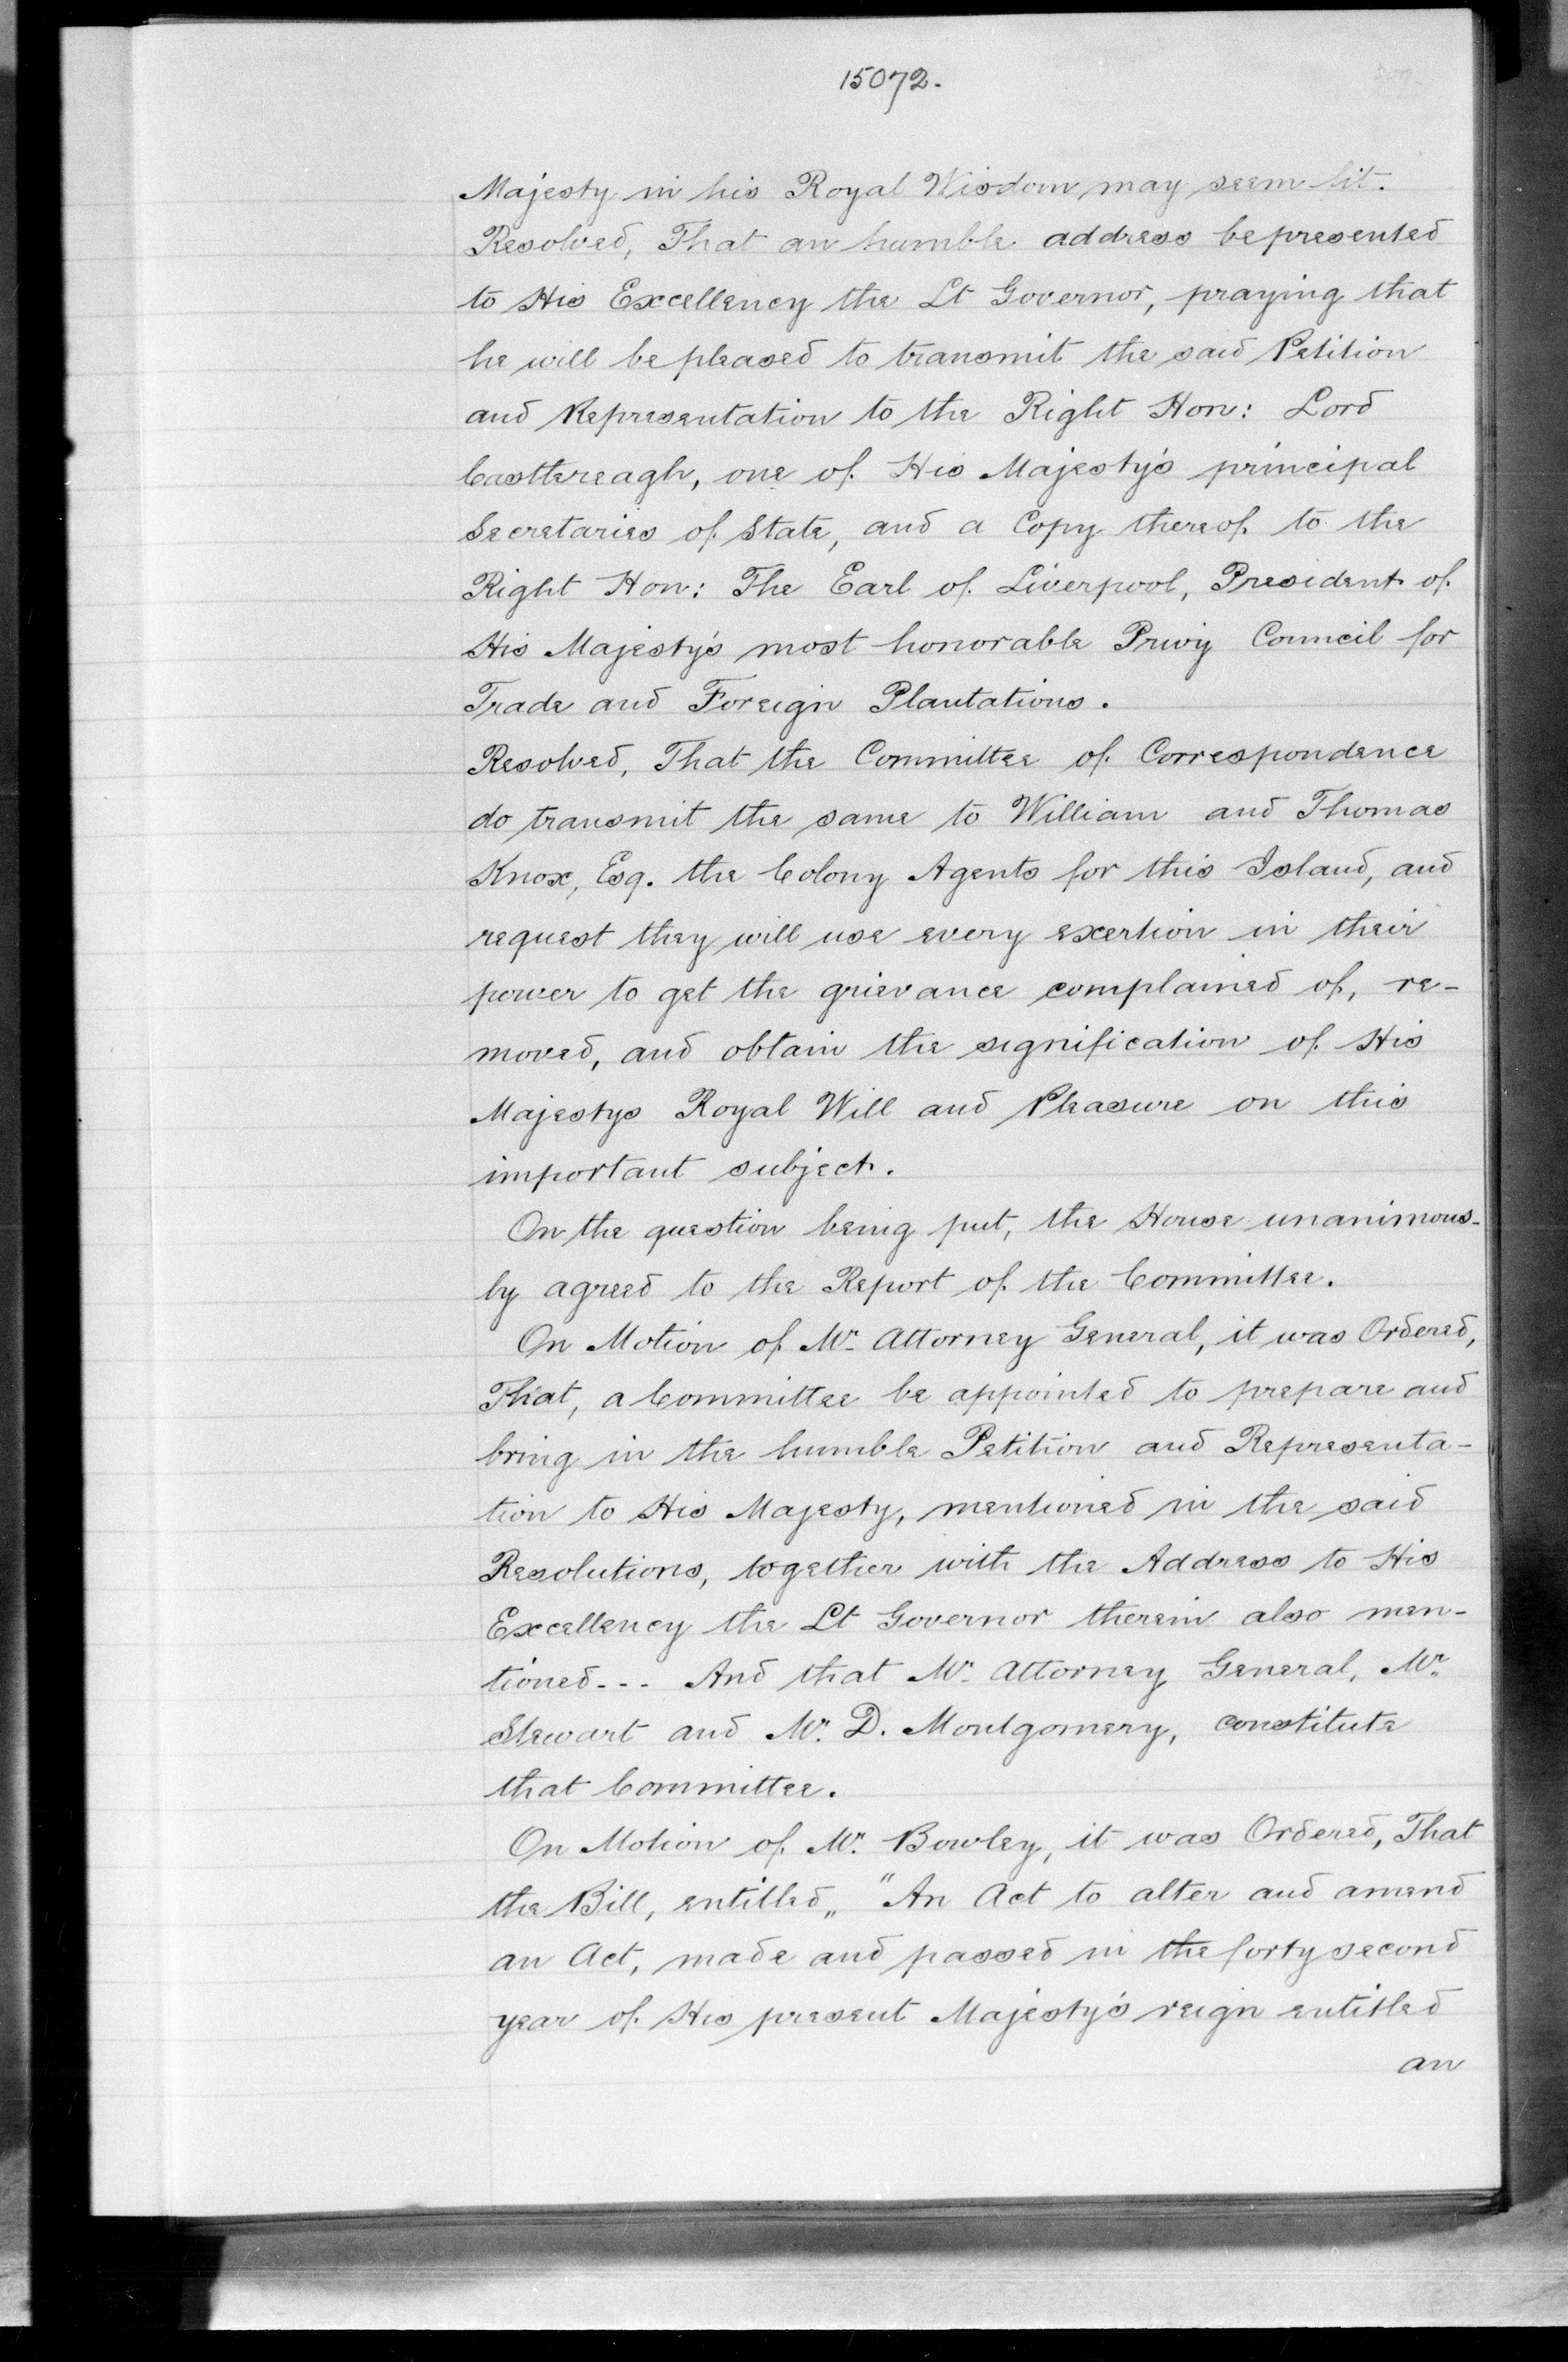 15072.
Majesty in his Royal Wisdom may seem fit.
Resolved, That an humble address be presented
to His Excellency the Lt Governor, praying that
he will be pleased to transmit the said Petition
and Representation to the Right Hon: Lord
Casttereagh, one of His Majesty's principal
Secretaries of State, and a Copy thereof to the
Right Hon: The Earl of Liverpool, President of
His Majesty's most honorable Privy Council for
Trade and Foreign Plantations.
Resolved, That the Committee of Correspondence
do transmit the same to William and Thomas
Knox, Esq. the Colony Agents for this Island, and
request they will use every exertion in their
power to get the grievance complained of, re-
moved, and obtain the signification of His
Majestys Royal Will and Pleasure on this
important subject.
On the question being put, the House unanimous-
ly agreed to the Report of the Committee.
On Motion of Mr. Attorney General, it was Ordered,
That, a Committee be appointed to prepare and
bring in the humble Petition and Representa-
tion to His Majesty, mentioned in the said
Resolutions, together with the Address to His
Excellency the Lt Governor therein also men-
tioned--- And that Mr. Attorney General, Mr.
Stewart and Mr. D. Montgomery, constitute
that Committee.
On Motion of Mr. Bowley, it was Ordered, That
the Bill, entitled,, "An Act to alter and amend
an Act, made and passed in the forty second
year of His present Majesty's reign entitled
an